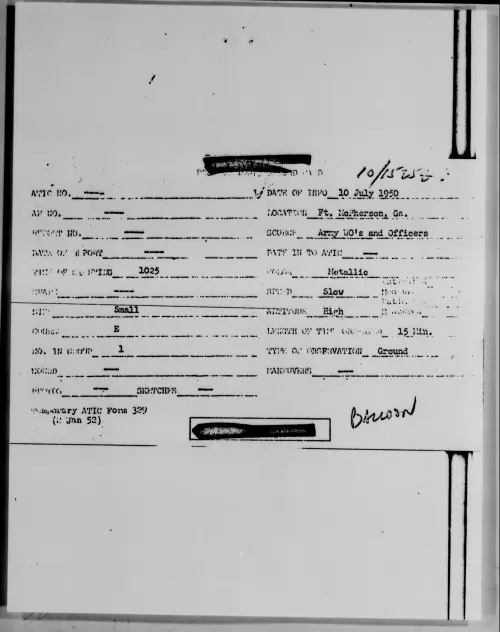 10/1525Z
ATIC NO. — DATE OF INFO 10 July 1950
AF NO. — LOCATION Ft. McPherson, Ga.
REPORT NO. — SOURCE Army WO's and Officers
DATE OF REPORT — DATE IN TO ATIC —
TIME OF SIGHTING 1025 COLOR Metallic
SHAPE — SPEED Slow
SIZE Small ALTITUDE High
COURSE E LENGTH OF TIME OBSERVED 15 Min.
NO. IN GROUP 1 TYPE OF OBSERVATION Ground
SOUND — MANEUVERS —
PHOTOS — SKETCHES —
Temporary ATIC Form 329
(2 Jan 52)
BALLOON